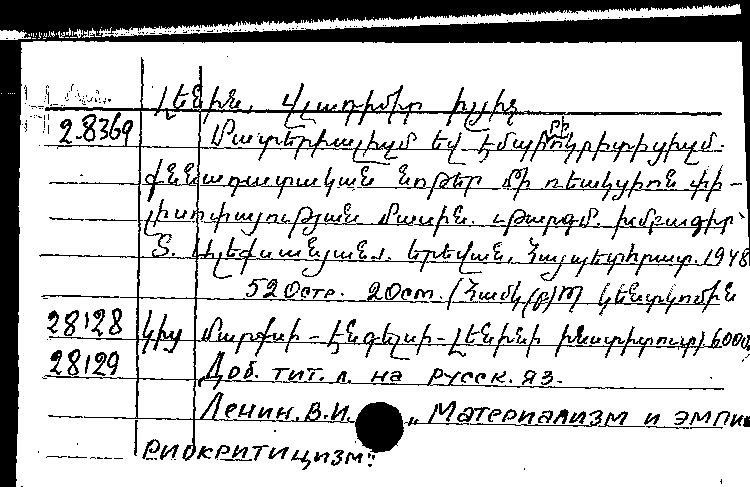 Լենին, Վլադիմիր Իլյիչ
28369 Մատերիալիզմ եվ էմպիրիոկրիտիցիզմ.
քննադատական նոթեր մի ռեակցիոն փի-
լիսոփայության մասին. Թարգմ. խմբագիր
Տ. Ալեքսանյան. Երեվան, Հայպետհրատ. 1948
520 стр. 20 см. (ՀամԿ(բ)Կ Կենտկոմին
28128 կից Մարքսի - Էնգելսի - Լենինի ինստիտուտ) 6000
28129 Доб. тит. л. на русск. яз.
Ленин. В.И. „Материализм и эмпи
риокритицизм“